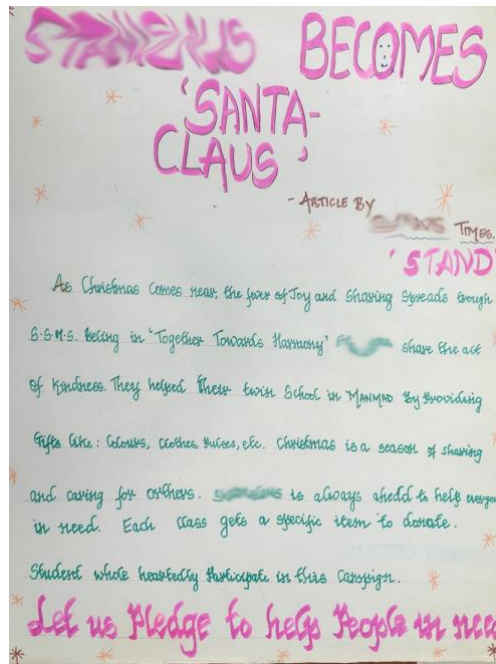 BECOMES
'SANTA-
CLAUS'
- ARTICLE BY
TIMES.
'STAND'
As Christmas comes near, the fever of Joy and Sharing Spreads trough
S.S.M.S. Being in "Together Towards Harmony" share the act
of Kindness. They helped their twin School in MANMAD By Providing
Gifts like: Colours, Clothes, Pulses, etc. Christmas is a season of sharing
and caring for others. is always ahead to help everyon
in need. Each Class gets a specific item to donate.
Student whole heartedly Participate in this Campaign.
Let us Pledge to help People in nee